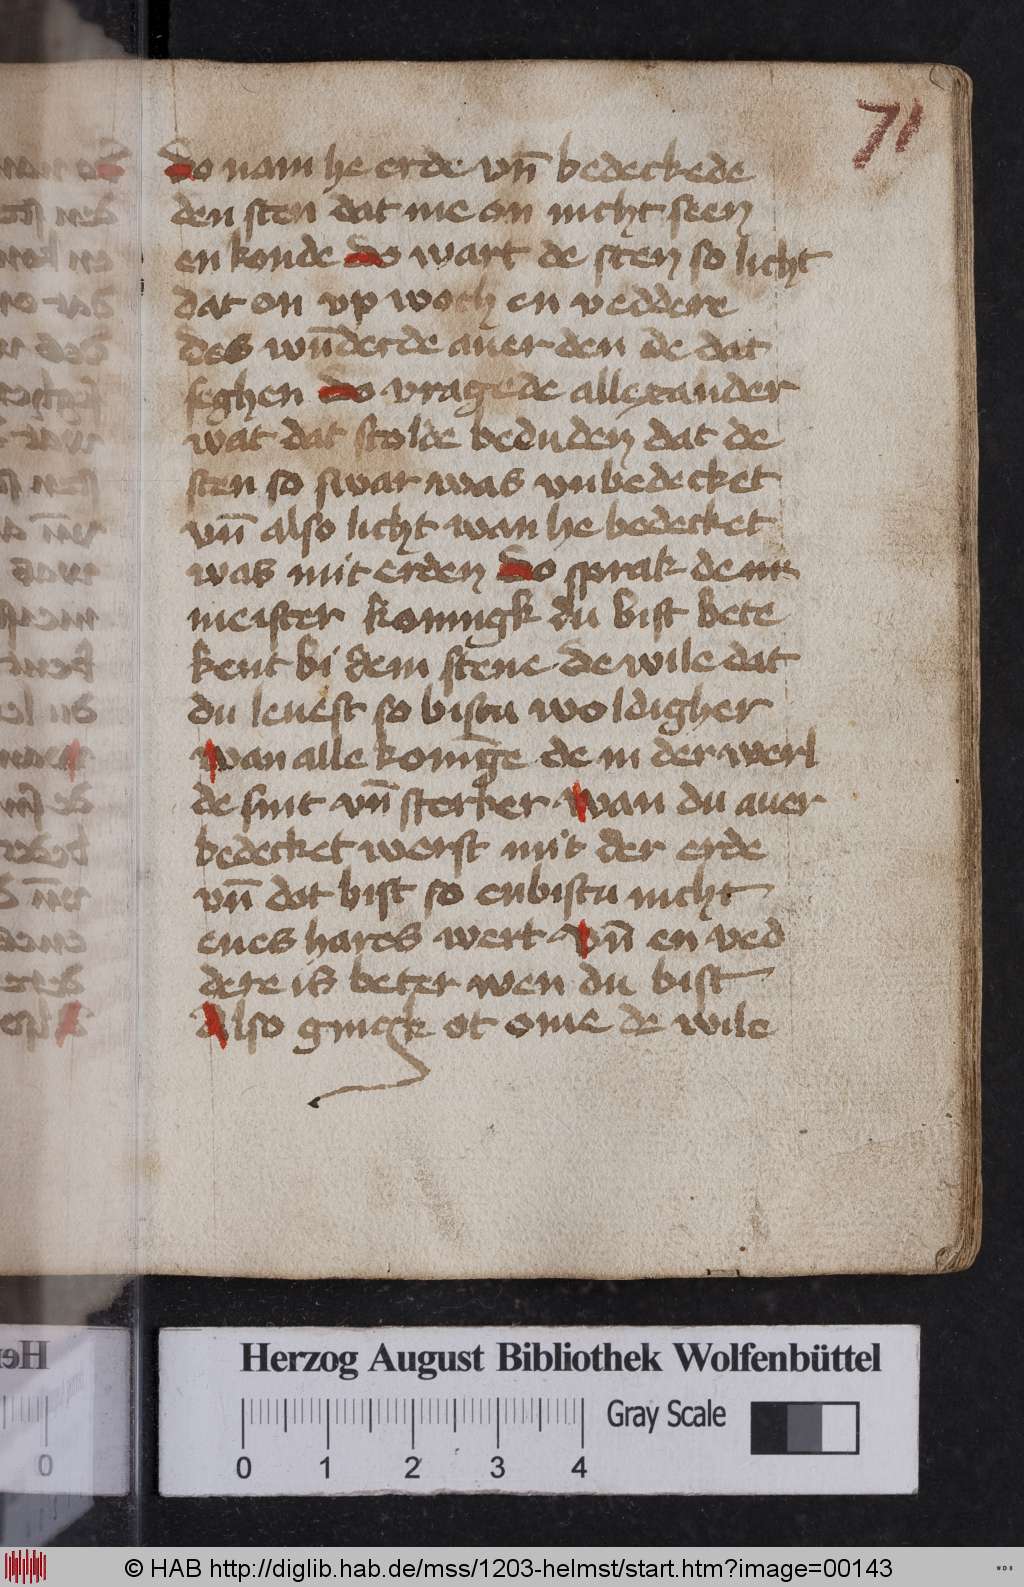 71
do nam he erde vn̄ bedeckede
den sten dat me on nicht seen
en konde do wart de sten so licht
dat on vp woch en veddere
des wn̄derde auer den de dat
seghen do vragede allexander
wat dat scolde beduden dat de
sten so swar was vnbedecket
vn̄ also licht wan he bedecket
was mit erden do sprak de
meister koningk du bist bete
kent bi dem stene de wile dat
du leuest so bistu woldigher
wan alle konīge de in der werl
de sint vn̄ sterker wan du auer
bedecket werst mit der erde
vn̄ dot bist so enbistu nicht
enes hares wert vn̄ en ved
dere is beter wen du bist
Also gingk ot ome de wile
Herzog August Bibliothek Wolfenbüttel
0 1 2 3 4
Gray Scale
© HAB http://diglib.hab.de/mss/1203-helmst/start.htm?image=00143